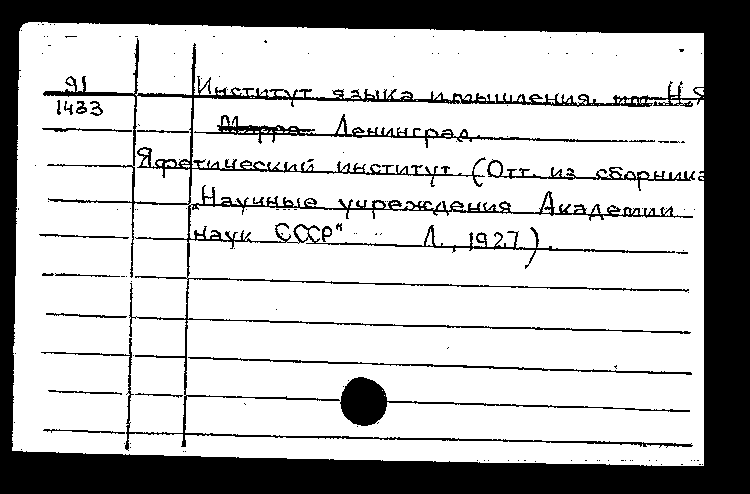 91
1433
Институт языка и мышления. им. Н.Я
Марра. Ленинград.
Яфетический институт. (Отт. из сборника
„Научные учреждения Академии
наук СССР" Л., 1927).